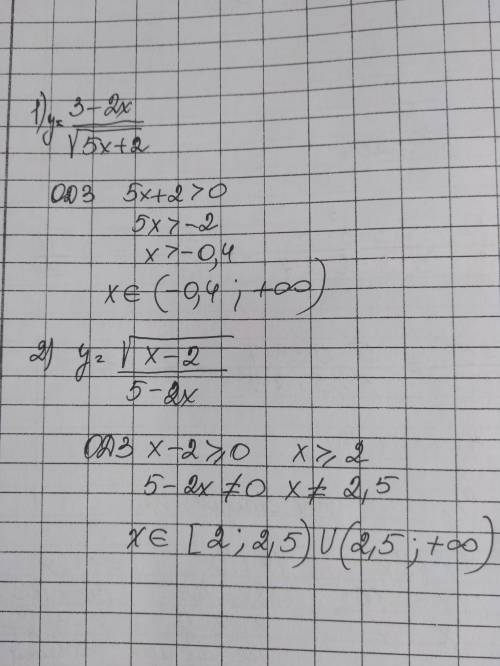 1) y = (3-2x)/√(5x+2)
ОДЗ 5x+2>0
5x>-2
x>-0,4
x∈(-0,4; +∞)
2) y = √(x-2)/(5-2x)
ОДЗ x-2⩾0 x⩾2
5-2x≠0 x≠2,5
x∈[2; 2,5)∪(2,5; +∞)